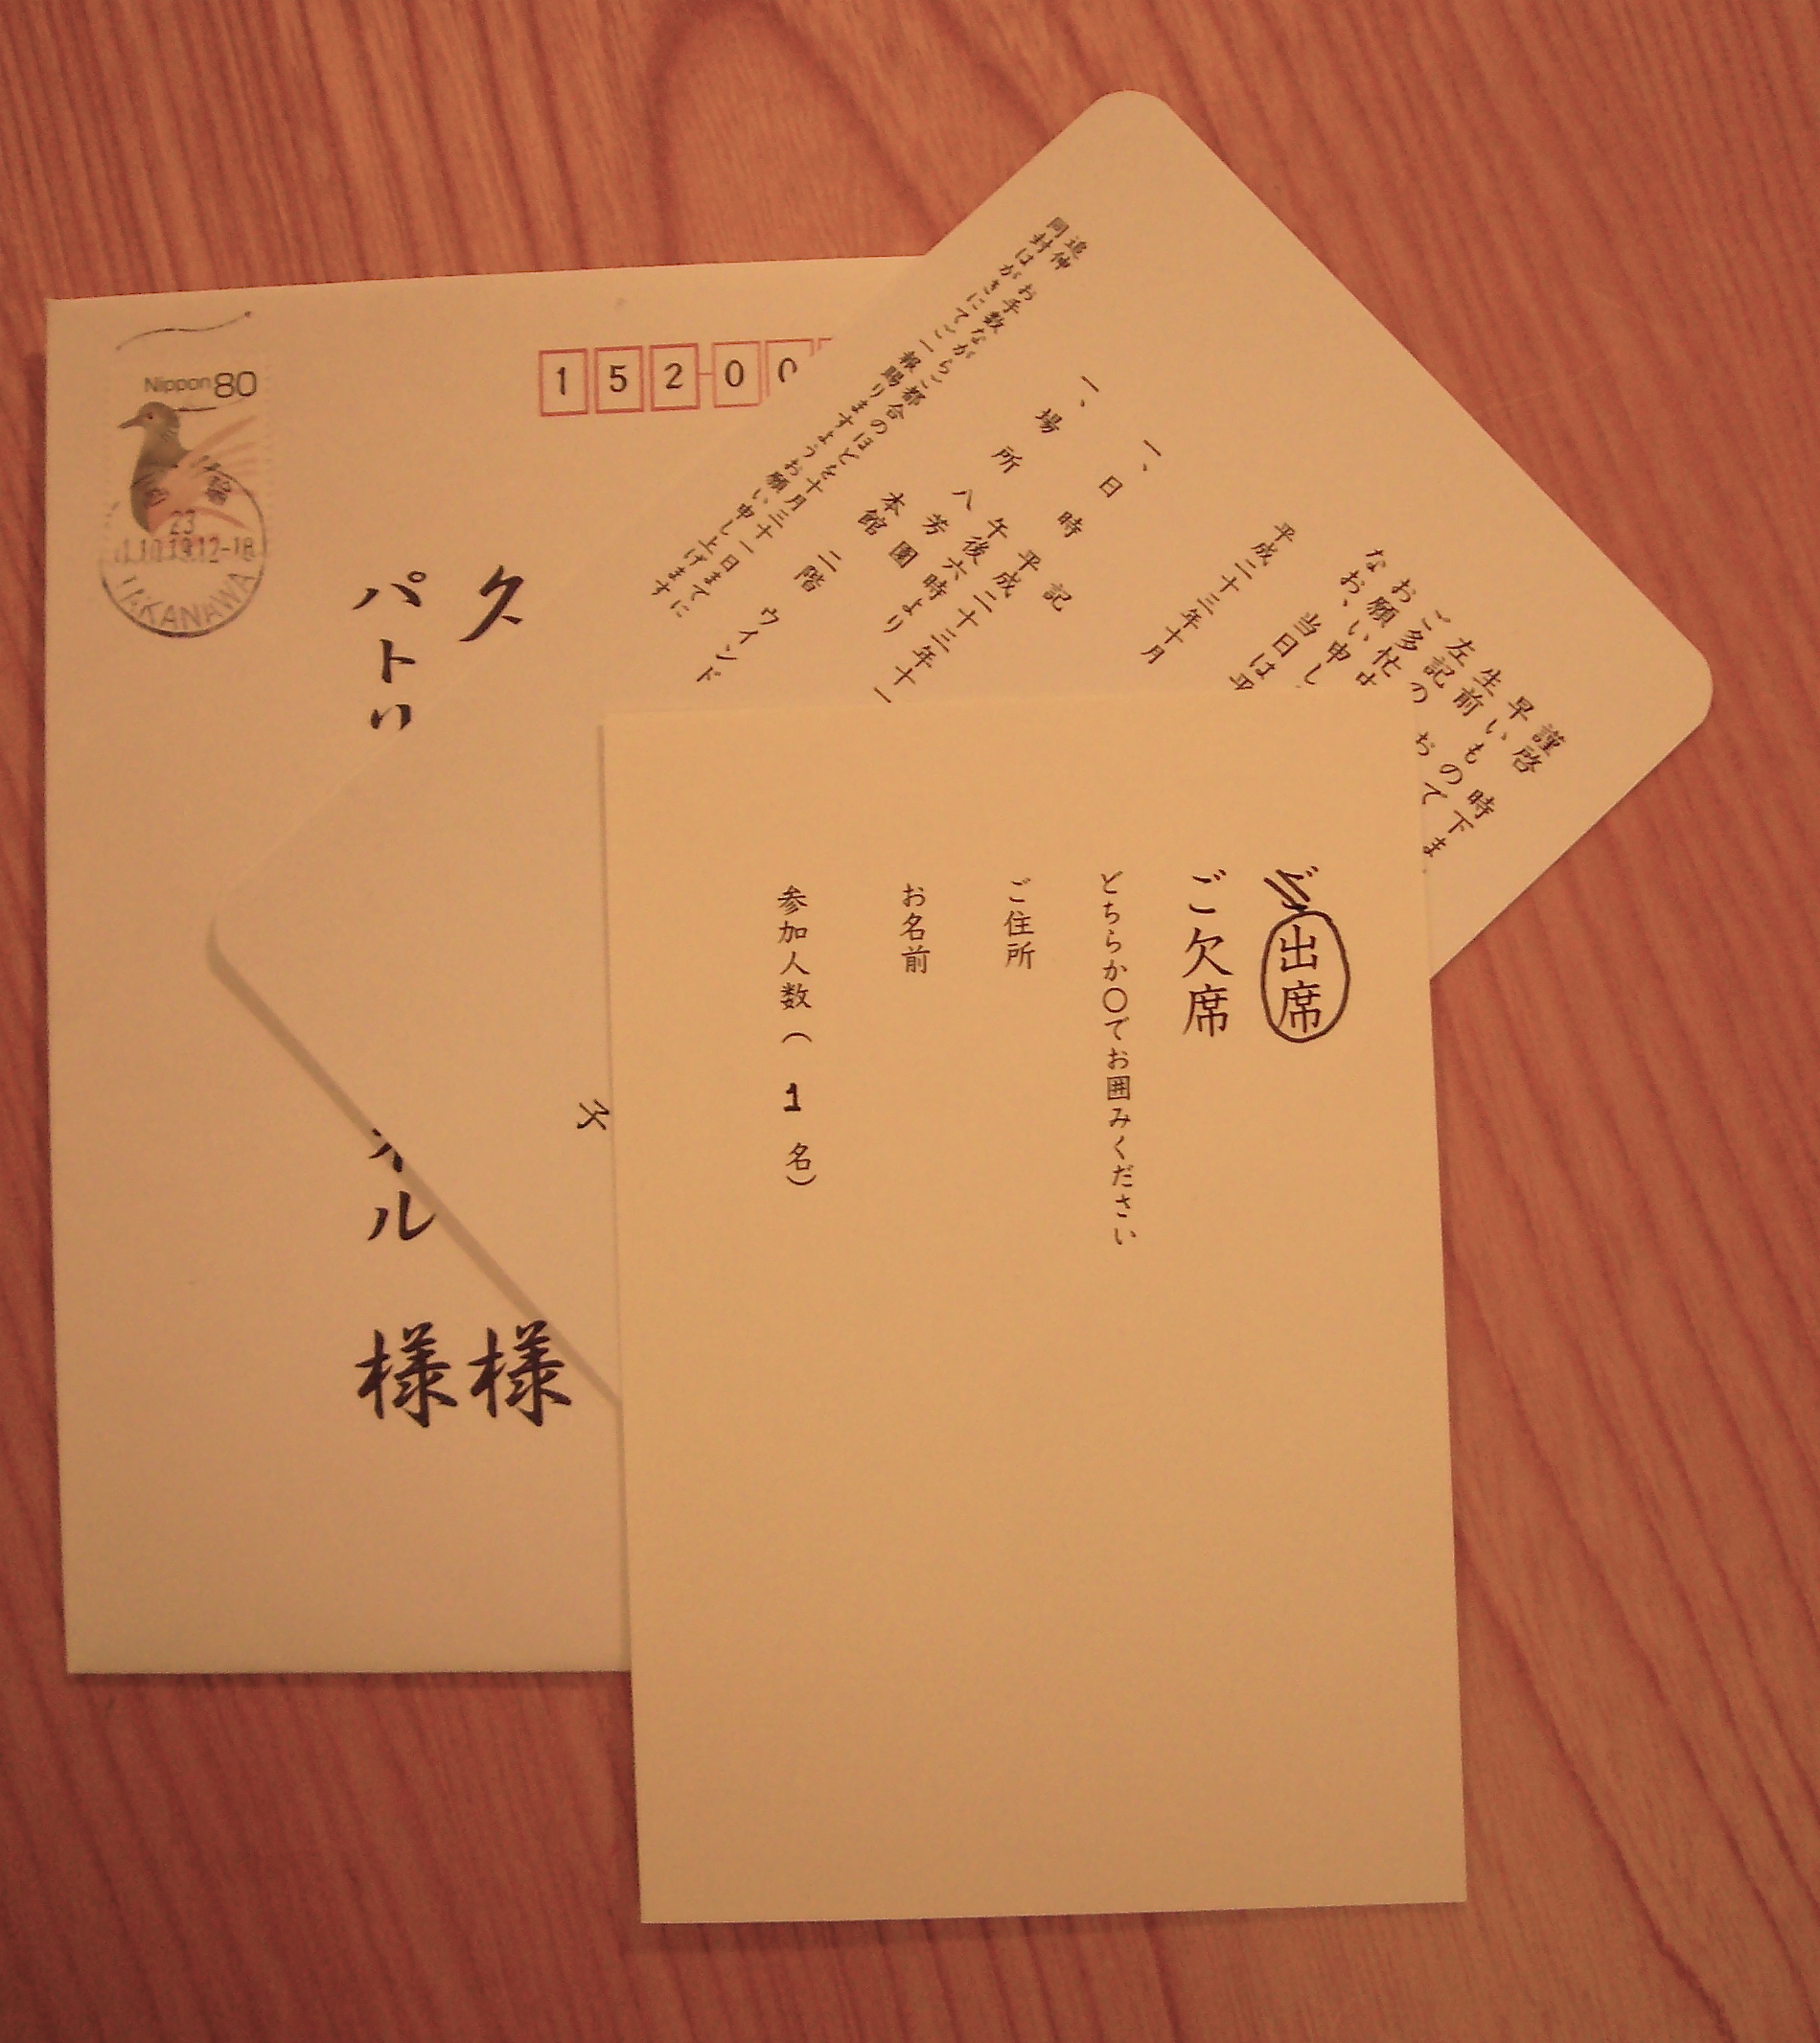 Nippon 80
23
.10.19.12-18
TAKANAWA
152-00
久
様
パトリ
ル
様
謹啓 時下ま
早
生前
左記の
ご多忙
お願い申し
なお、当日は平
平成二十三年十月
記
一、日時 平成二十三年十一
午後六時より
一、場所 八芳園
本館 二階 ウインド
追伸 お手数ながらご都合のほどを十月三十一日までに
同封はがきにてご一報賜りますようお願い申し上げます
ご出席
ご欠席
どちらか〇でお囲みください
ご住所
お名前
参加人数( 1 名)